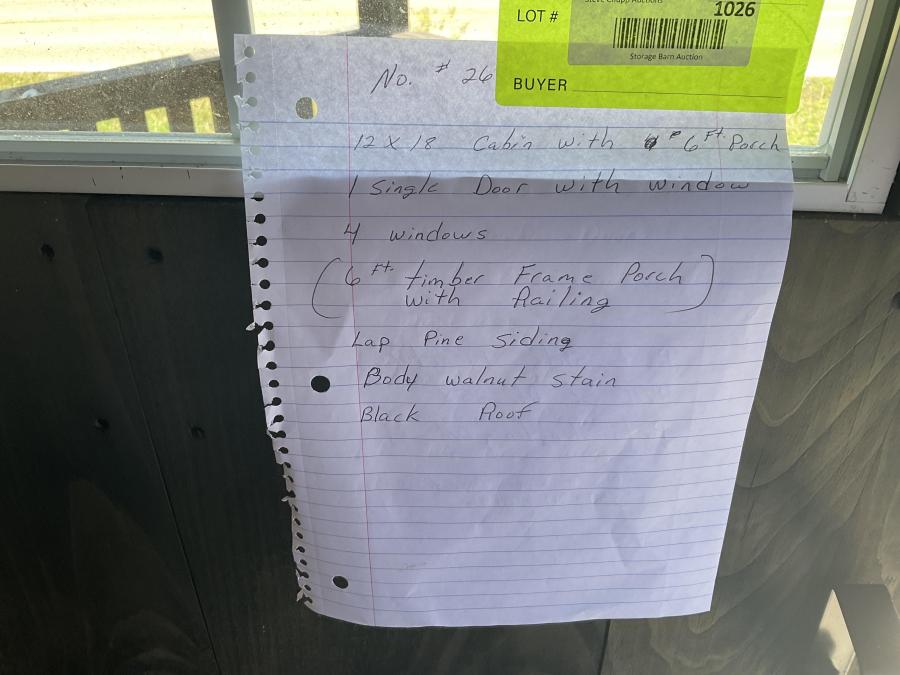 LOT #
1026
Storage Barn Auction
BUYER
No. # 26
12 x 18 Cabin with 6 Ft. Porch
1 Single Door with window
4 windows
(6 Ft. timber Frame Porch
with Railing)
Lap Pine Siding
Body walnut stain
Black Roof